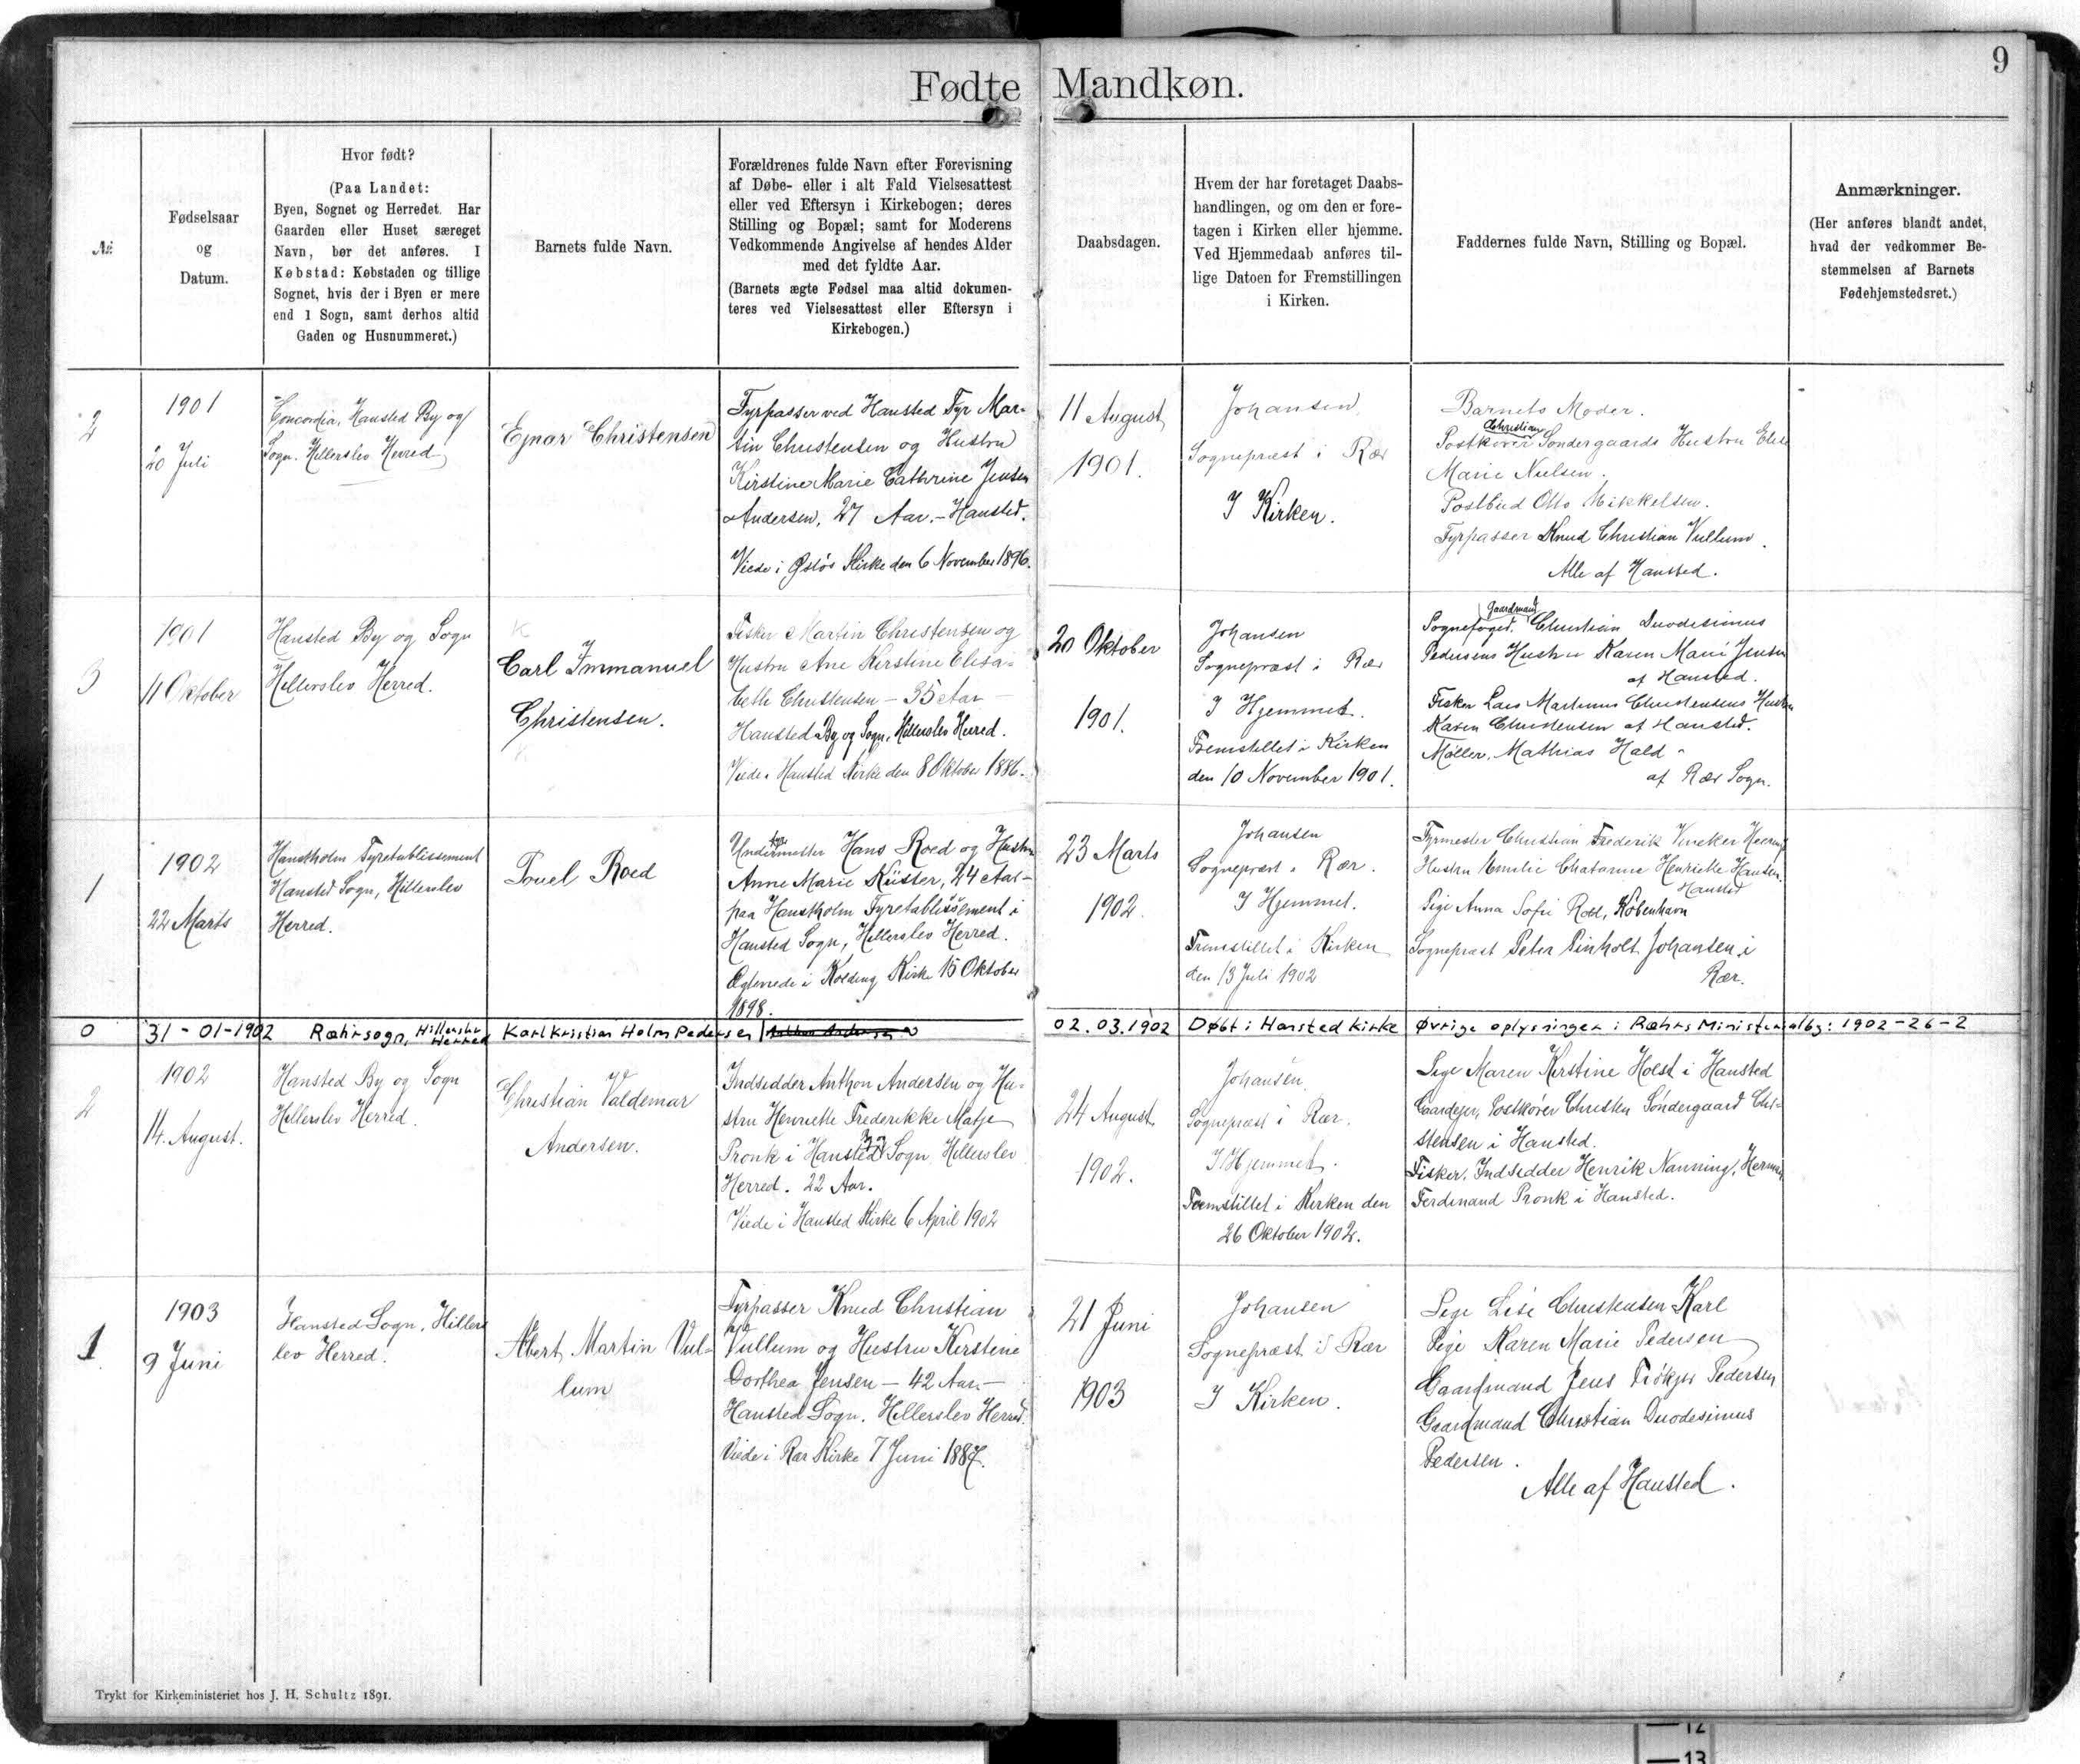 9
Fødte Mandkøn.
№
Fødselsaar
og
Datum.
Hvor født?
(Paa Landet:
Byen, Sognet og Herredet. Har
Gaarden eller Huset særeget
Navn, bør det anføres. I
Købstad: Købstaden og tillige
Sognet, hvis der i Byen er mere
end 1 Sogn, samt derhos altid
Gaden og Husnummeret.)
Barnets fulde Navn.
Forældrenes fulde Navn efter Forevisning
af Døbe- eller i alt Fald Vielsesattest
eller ved Eftersyn i Kirkebogen; deres
Stilling og Bopæl; samt for Moderens
Vedkommende Angivelse af hendes Alder
med det fyldte Aar.
(Barnets ægte Fødsel maa altid dokumen-
teres ved Vielsesattest eller Eftersyn i
Kirkebogen.)
Daabsdagen.
Hvem der har foretaget Daabs-
handlingen, og om den er fore-
tagen i Kirken eller hjemme.
Ved Hjemmedaab anføres til-
lige Datoen for Fremstillingen
i Kirken.
Faddernes fulde Navn, Stilling og Bopæl.
Anmærkninger.
(Her anføres blandt andet,
hvad der vedkommer Be-
stemmelsen af Barnets
Fødehjemstedsret.)
2
1901
20 Juli
Concordia, Hansted By og
Sogn. Hillerslev Herred
Ejnar Christensen
Fyrpasser ved Hansted Fyr Mar-
tin Christensen og Hustru
Kirstine Marie Cathrine Jensen
Andersen, 27 Aar. - Hansted.
Viede i Øsløs Kirke den 6 November 1896.
11 August
1901.
Johansen
Sognepræst i Rær
I Kirken.
Barnets Moder.
Christian
Postkører Søndergaards Hustru Else
Marie Nielsen.
Postbud Otto Mikkelsen.
Fyrpasser Knud Christian Vullum.
Alle af Hansted.
3
1901
11 Oktober
Hansted By og Sogn
Hillerslev Herred.
Carl Immanuel
Christensen.
Fisker Martin Christensen og
Hustru Ane Kirstine Elisa-
beth Christensen - 35 Aar -
Hansted By og Sogn, Hillerslev Herred.
Viede i Hansted Kirke den 8 Oktober 1886.
20 Oktober
1901.
Johansen
Sognepræst i Rær
I Hjemmet.
Fremstillet i Kirken
den 10 November 1901.
Gaardmand
Sognefoged, Christian Duodesimus
Pedersens Hustru Karen Marie Jensen
af Hansted.
Fisker Lars Martinus Christensens Hustru
Karen Christensen af Hansted.
Møller, Mathias Hald
af Rær Sogn.
1
1902
22 Marts
Hanstholm Fyretablissement
Hansted Sogn, Hillerslev
Herred.
Poul Roed
fyr
Undermester Hans Roed og Hustru
Anne Marie Küster, 24 Aar -
paa Hanstholm Fyretablissement i
Hansted Sogn, Hillerslev Herred.
Ægteviede i Kolding Kirke 15 Oktober
1898.
23 Marts
1902.
Johansen
Sognepræst i Rær.
I Hjemmet.
Fremstillet i Kirken
den 13 Juli 1902
Fyrmester Christian Frederik
Hustru Emilie Chatarine Henriette Hansen.
Hansted
Pige Anna Sofie Roed, København
Sognepræst Peter Pinholt Johansen i
Rær.
0 31-01-1902 Ræhr sogn, Hillerslev Herred Karl Kristian Holm Pedersen 02.03.1902 Døbt i Hansted Kirke Øvrige oplysninger i Ræhrs Ministerialbg: 1902-26-2
2
1902
14. August.
Hansted By og Sogn
Hillerslev Herred.
Christian Valdemar
Andersen.
Indsidder Anthon Andersen og Hu-
stru Henriette Frederikke Matje
Pronk i Hansted Sogn, Hillerslev
Herred. 22 Aar.
Viede i Hansted Kirke 6 April 1902
24 August
1902.
Johansen
Sognepræst i Rær.
I Hjemmet.
Fremstillet i Kirken den
26 Oktober 1902.
Pige Maren Kirstine Holst i Hansted
Gaardejer, Postkører Christen Søndergaard Chri-
stensen i Hansted.
Fisker, Indsidder Henrik Nanning, Herman
Ferdinand Pronk i Hansted.
1
1903
9 Juni
Hansted Sogn, Hillers
lev Herred.
Albert Martin Vul-
lum
Fyrpasser Knud Christian
Vullum og Hustru Kirstine
Dorthea Jensen - 42 Aar. -
Hansted Sogn. Hillerslev Herred.
Viede i Rær Kirke 7 Juni 1887.
21 Juni
1903
Johansen
Sognepræst i Rær
I Kirken.
Pige Lise Christensen Karl
Pige Karen Marie Pedersen
Gaardmand Jens Frökjer Pedersen
Gaardmand Christian Duodesimus
Pedersen.
Alle af Hansted.
Trykt for Kirkeministeriet hos J. H. Schultz 1891.
12
13